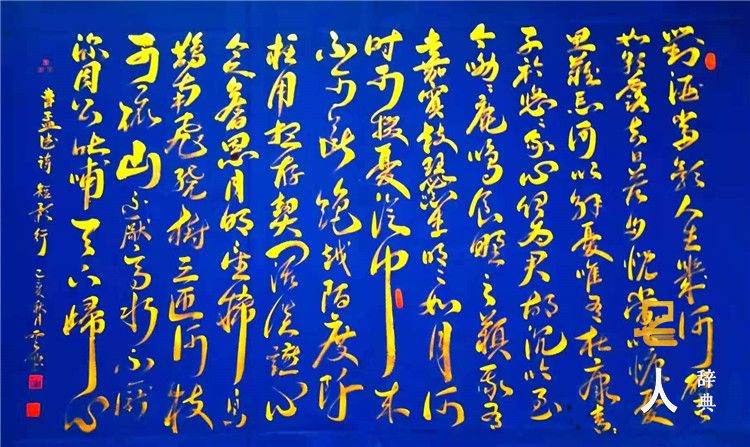 對酒當歌人生幾何譬
如朝露去日苦多慨當以慷憂
思難忘何以解憂唯有杜康青
子衿悠悠我心但為君故沉吟至
今呦呦鹿鳴食野之蘋我有
嘉賓鼓瑟笙明明如月何
时可掇憂從中來
不可斷絕越陌度阡
枉用相存契阔談讌心
念舊恩月明星稀烏
鵲南飛繞樹三匝何枝
可依山不厭高水不厭
深周公吐哺天下歸心
書孟德詩短歌行 己亥
人
辞典